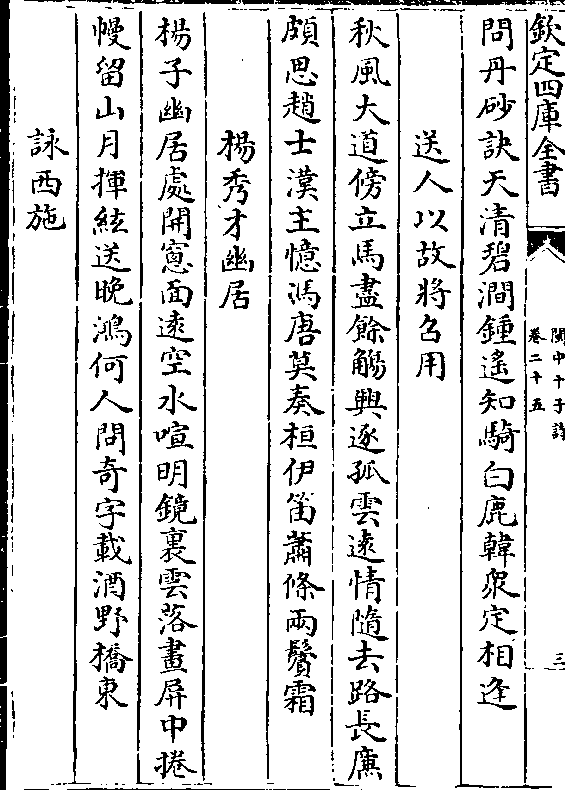 欽定四庫全書
閩中十子詩
卷二十五
三
問丹砂訣天清碧澗鍾遙知騎白鹿韓衆定相逢
送人以故將召用
秋風大道傍立馬盡餘觴興逐孤雲遠情隨去路長廉
頗思趙士漢主憶馮唐莫奏桓伊笛蕭條兩鬢霜
楊秀才幽居
楊子幽居處開窻面遠空水喧明鏡裏雲落畫屏中捲
幔留山月揮絃送晚鴻何人問奇字載酒野橋東
詠西施